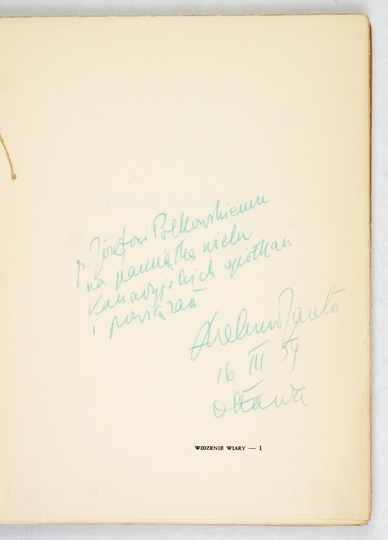 p. Józefowi Polkowskiemu
na pamiątkę wielu
kanadyjskich spotkań
i powiązań
Wacław Iwaniuk
16 III 59
Ottawa
WIDZENIE WIARY — 1